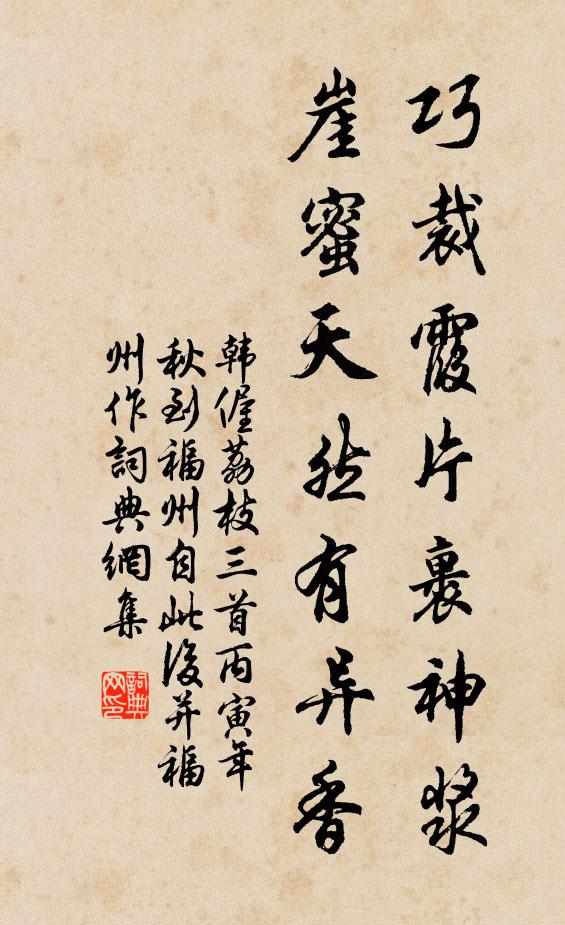 巧裁霞片裹神漿
崖蜜天然有异香
韩偓荔枝三首丙寅年
秋到福州自此後并福
州作詞典網集
詞典网印